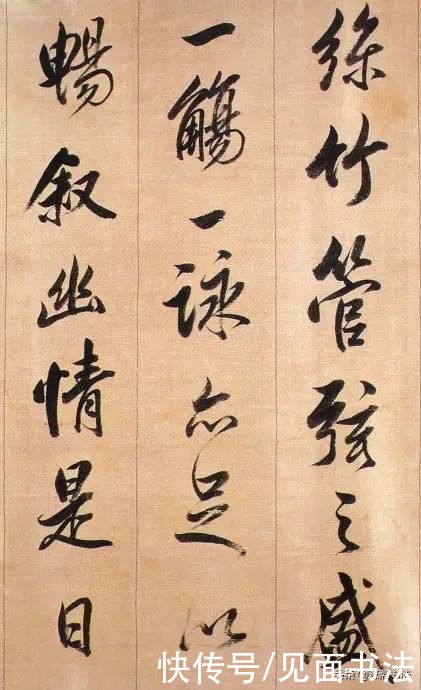 絲竹管弦之盛
一觴一詠亦足以
暢叙幽情是日
快传号/见面书法